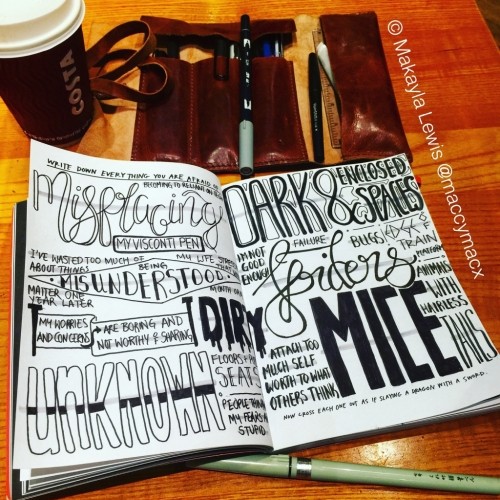 COSTA
© Makayla Lewis @maccymacx
WRITE DOWN EVERYTHING YOU ARE AFRAID OF
BECOMING TO RELIANT ON
Misplacing
MY VISCONTI PEN
I'VE WASTED TOO MUCH OF MY LIFE STRESSING
ABOUT THINGS BEING
MISUNDERSTOOD
MATTER ONE MONTH OR
YEAR LATER
MY WORRIES
AND CONCERNS
ARE BORING AND
NOT WORTHY OF SHARING
DIRTY
FLOORS &
SEATS
UNKNOWN
PEOPLE THINK
MY FEARS ARE
STUPID
DARK & ENCLOSED
SPACES
I'M NOT
GOOD
ENOUGH
FAILURE
BUGS
TRAIN
PLATFORMS
Spiders
ANIMALS
WITH
HAIRLESS
TAILS
MICE
ATTACH TOO
MUCH SELF
WORTH TO WHAT
OTHERS THINK
NOW CROSS EACH ONE OUT AS IF SLAYING A DRAGON WITH A SWORD.